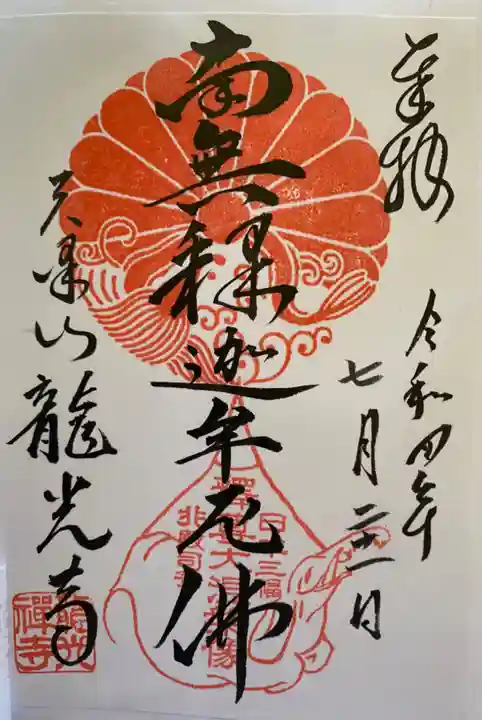 奉拝
令和四年
七月二十一日
南無釋迦牟尼佛
天澤山龍光寺
龍光
禪寺